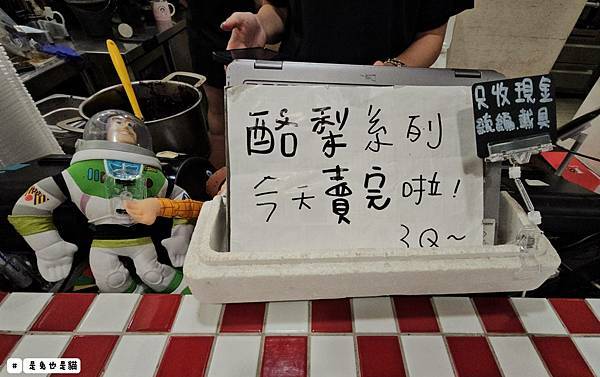 酪梨系列
今天賣完啦!
3Q~
只收現金
謝謝
# 是兔也是貓